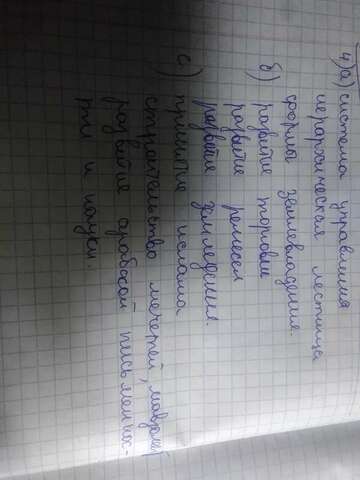 4) а) система управления
иерархическая лестница
формы землевладения.
б) развитие торговли
развитие ремесел
развитие земледелия.
с) принятие ислама
строительство мечетей, мавзолей
развитие арабской письменнос-
ти и науки.